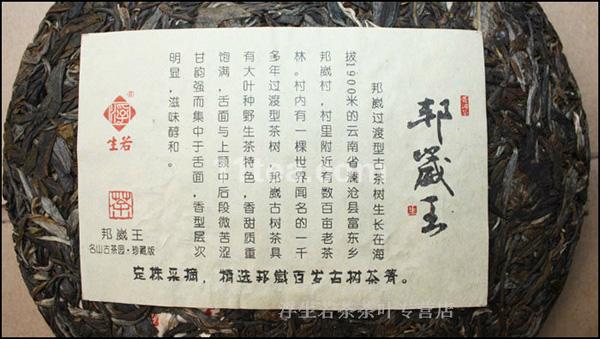 邦崴王
邦崴过渡型古茶树生长在海
拔1900米的云南省澜沧县富东乡
邦崴村，村里附近有数百亩老茶
林。村内有一棵世界闻名的一千
多年过渡型茶树，邦崴古树茶具
有大叶种野生茶特色，香甜质重
饱满，舌面与上颚中后段微苦涩
甘韵强而集中于舌面，香型层次
明显，滋味醇和。
浮
若生
茶
邦崴王
名山古茶园·珍藏版
定株采摘，精选邦崴百岁古树茶箐。
浮生若茶茶叶专营店